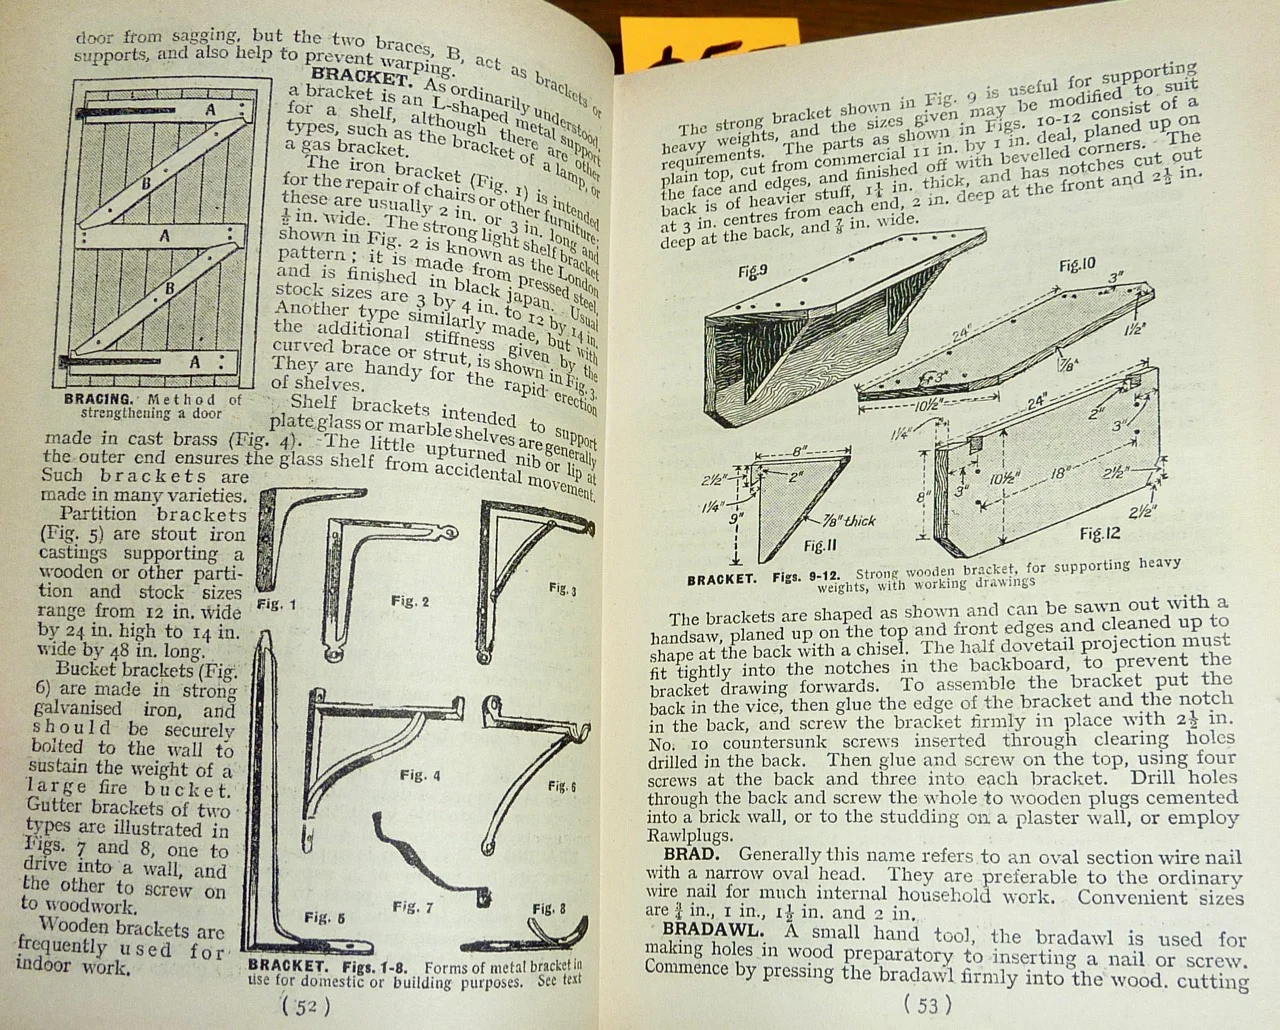 door from sagging, but the two braces, B, act as brackets or
supports, and also help to prevent warping.
A
B
A
B
A
BRACING. Method of
strengthening a door
BRACKET. As ordinarily understood,
a bracket is an L-shaped metal support
for a shelf, although there are other
types, such as the bracket of a lamp, or
a gas bracket.
The iron bracket (Fig. 1) is intended
for the repair of chairs or other furniture;
these are usually 2 in. or 3 in. long and
½ in. wide. The strong light shelf bracket
shown in Fig. 2 is known as the London
pattern; it is made from pressed steel,
and is finished in black japan. Usual
stock sizes are 3 by 4 in. to 12 by 14 in.
Another type similarly made, but with
the additional stiffness given by the
curved brace or strut, is shown in Fig. 3.
They are handy for the rapid erection
of shelves.
Shelf brackets intended to support
plate glass or marble shelves are generally
made in cast brass (Fig. 4). The little upturned nib or lip at
the outer end ensures the glass shelf from accidental movement.
Such brackets are
made in many varieties.
Partition brackets
(Fig. 5) are stout iron
castings supporting a
wooden or other parti-
tion and stock sizes
range from 12 in. wide
by 24 in. high to 14 in.
wide by 48 in. long.
Bucket brackets (Fig.
6) are made in strong
galvanised iron, and
should be securely
bolted to the wall to
sustain the weight of a
large fire bucket.
Gutter brackets of two
types are illustrated in
Figs. 7 and 8, one to
drive into a wall, and
the other to screw on
to woodwork.
Wooden brackets are
frequently used for
indoor work.
Fig. 1
Fig. 2
Fig. 3
Fig. 4
Fig. 6
Fig. 5
Fig. 7
Fig. 8
BRACKET. Figs. 1-8. Forms of metal bracket in
use for domestic or building purposes. See text
(52)
The strong bracket shown in Fig. 9 is useful for supporting
heavy weights, and the sizes given may be modified to suit
requirements. The parts as shown in Figs. 10-12 consist of a
plain top, cut from commercial 11 in. by 1 in. deal, planed up on
the face and edges, and finished off with bevelled corners. The
back is of heavier stuff, 1¼ in. thick, and has notches cut out
at 3 in. centres from each end, 2 in. deep at the front and 2½ in.
deep at the back, and ⅞ in. wide.
Fig.9
Fig.10
3"
24"
1½"
7/8"
3"
10½"
24"
1¼"
2"
3"
8"
2½"
2"
1¼"
9"
7/8" thick
Fig.11
8"
3"
10½"
18"
2½"
2½"
Fig.12
BRACKET. Figs. 9-12. Strong wooden bracket, for supporting heavy
weights, with working drawings
The brackets are shaped as shown and can be sawn out with a
handsaw, planed up on the top and front edges and cleaned up to
shape at the back with a chisel. The half dovetail projection must
fit tightly into the notches in the backboard, to prevent the
bracket drawing forwards. To assemble the bracket put the
back in the vice, then glue the edge of the bracket and the notch
in the back, and screw the bracket firmly in place with 2½ in.
No. 10 countersunk screws inserted through clearing holes
drilled in the back. Then glue and screw on the top, using four
screws at the back and three into each bracket. Drill holes
through the back and screw the whole to wooden plugs cemented
into a brick wall, or to the studding on a plaster wall, or employ
Rawlplugs.
BRAD. Generally this name refers to an oval section wire nail
with a narrow oval head. They are preferable to the ordinary
wire nail for much internal household work. Convenient sizes
are ¾ in., 1 in., 1½ in. and 2 in.
BRADAWL. A small hand tool, the bradawl is used for
making holes in wood preparatory to inserting a nail or screw.
Commence by pressing the bradawl firmly into the wood, cutting
(53)